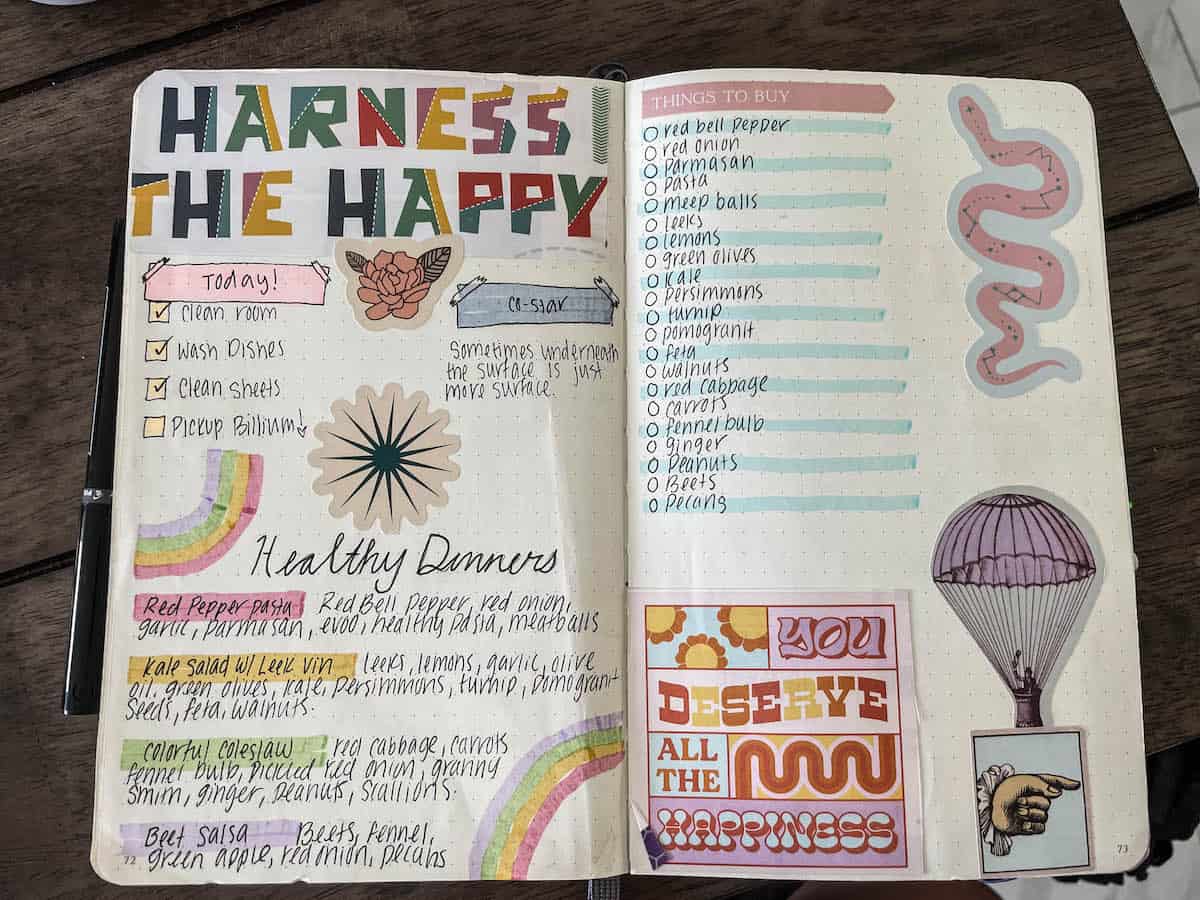 HARNESS
THE HAPPY
Today!
Clean room
Wash Dishes
Clean Sheets
Pickup Billium
co-star
Sometimes underneath
the surface is just
more surface.
Healthy Dinners
Red Pepper pasta Red Bell Pepper, red onion,
garlic, parmasan, evoo, healthy pasta, meatballs
Kale Salad w/ Leek Vin leeks, lemons, garlic, olive
oil, green olives, kale, persimmons, turnip, pomogranit
Seeds, feta, walnuts.
Colorful Coleslaw red cabbage, carrots
fennel bulb, pickled red onion, granny
Smim, ginger, peanuts, scallions.
Beet Salsa Beets, fennel,
green apple, red onion, pecans
72
THINGS TO BUY
red bell pepper
red onion
Parmasan
Pasta
meep balls
leeks
lemons
green olives
Kale
persimmons
turnip
pomogranit
feta
walnuts
red cabbage
carrots
fennel bulb
ginger
Peanuts
Beets
Pecans
YOU
DESERVE
ALL
THE
HAPPINESS
73